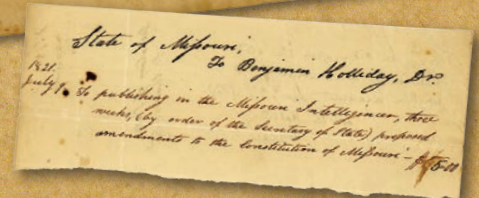 State of Missouri,
To Benjamin Holliday, Dr.
1821.
July 9. To publishing in the Missouri Intelligencer, three
weeks, (by order of the Secretary of State) proposed
amendments to the Constitution of Missouri -